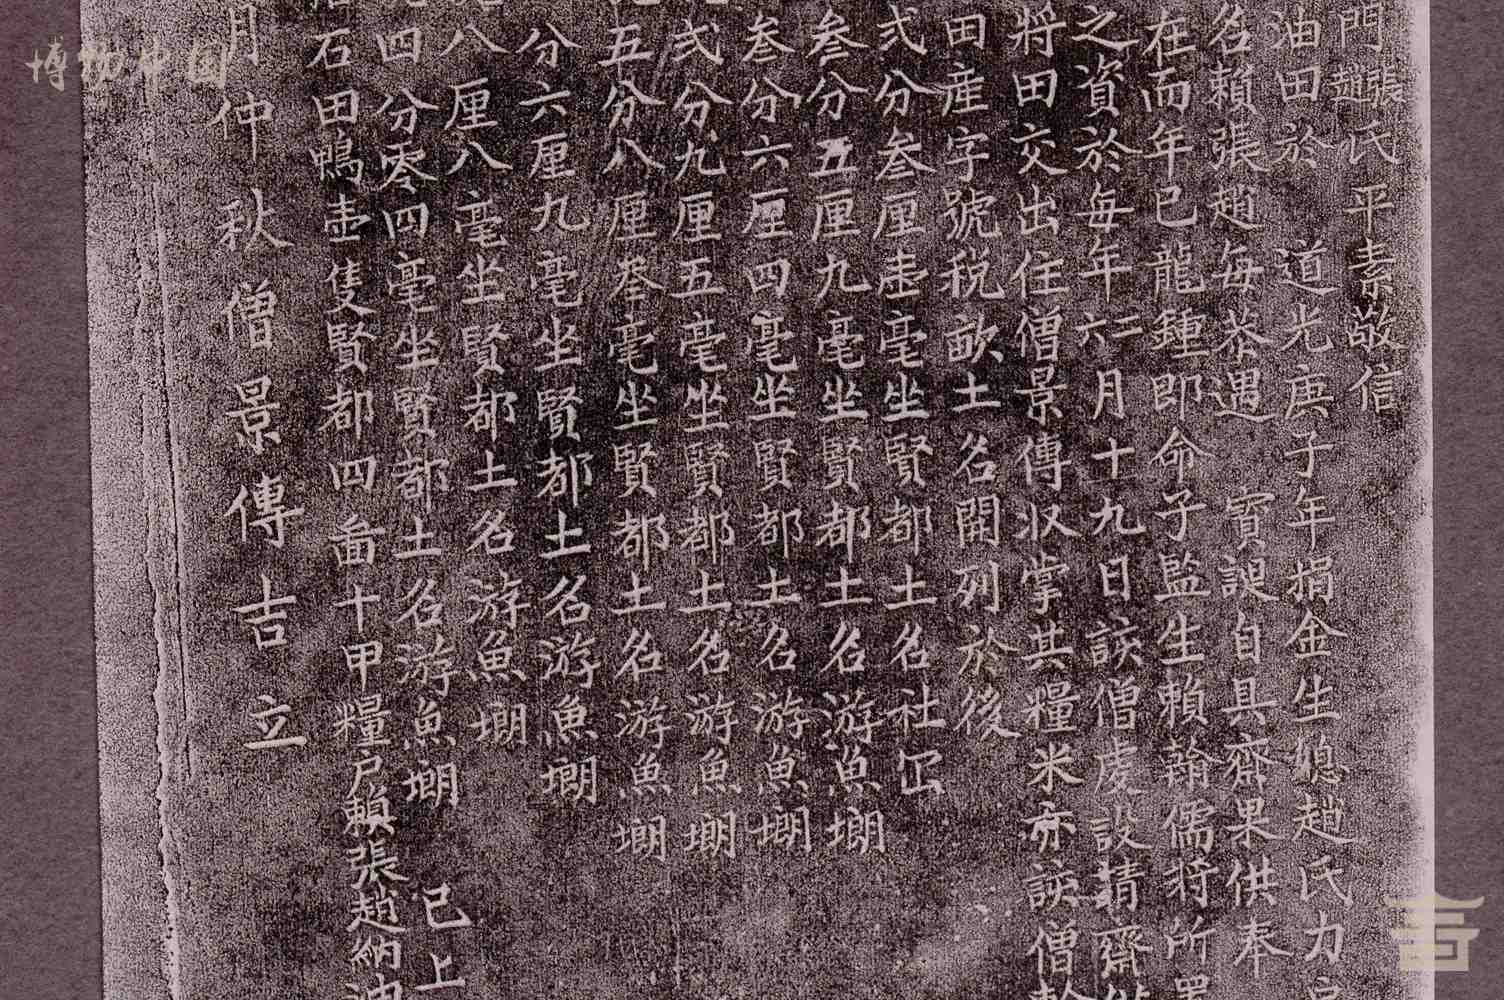 門張趙氏平素敬信
油田於 道光庚子年捐金生媳趙氏力
名賴張趙每恭遇 寶誕自具齋果供奉
在而年已龍鍾即命子監生賴翰儒將所置
之資於每年六二月十九日該僧虔設精齋
將田交出住僧景傳收掌其糧米亦該僧
田產字號稅畝土名開列於後
弍分叁厘壹毫坐賢都土名社
叁分五厘九毫坐賢都土名游魚堋
叁分六厘四毫坐賢都土名游魚堋
弍分九厘五毫坐賢都土名游魚堋
五分八厘叄毫坐賢都土名游魚堋
分六厘九毫坐賢都土名游魚堋
八厘八毫坐賢都土名游魚堋
四分零四毫坐賢都土名游魚堋 已上
石田鴨壹隻賢都四啚十甲糧戶賴張趙納
月仲秋僧景傳吉立
博物中国